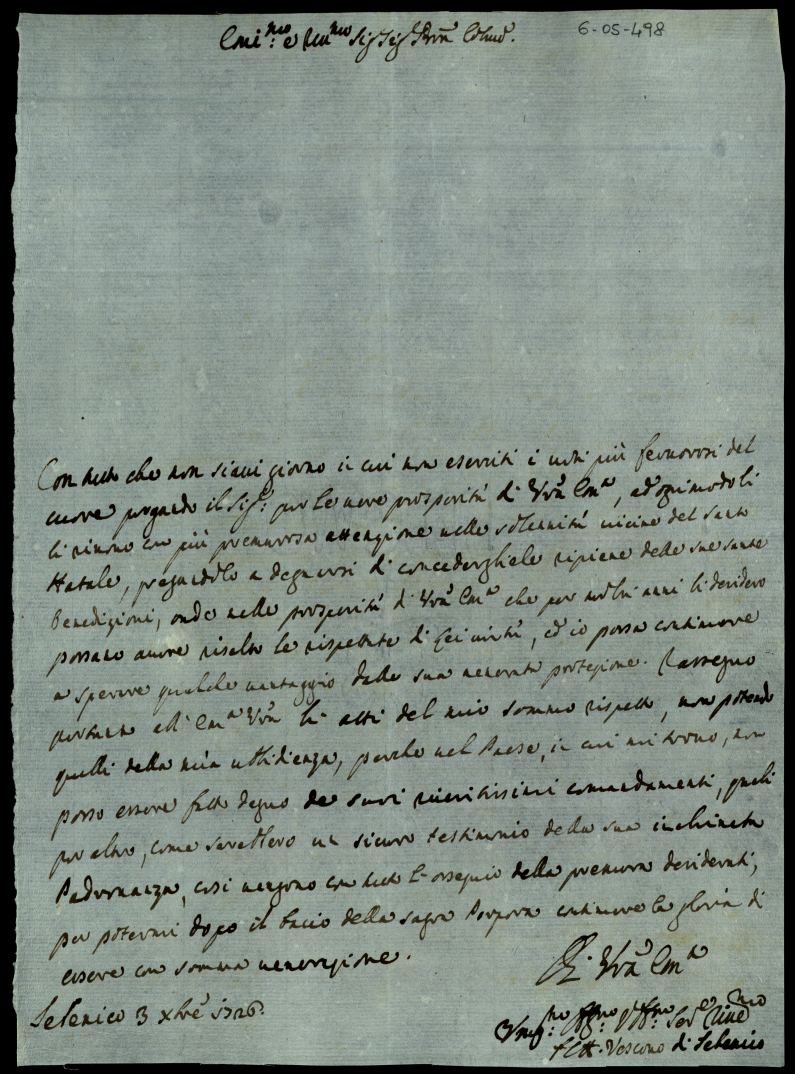 Emi.mo e Rev.mo Sig Sig Pron Colmo.
6-05-498
Con tutto che non siavi giorno in cui non eserciti i voti più fervorosi del
cuore pregando il Sig.: per le vere prosperità di Vrã Em.a, ad ogni modo li
li rinovo con più premurosa attenzione nelle solennità vicine del Santo
Natale, pregandolo a degnarsi di concederghele ripiene delle sue sante
Benedizioni, onde nelle prosperità di Vrã Em.a che per molti anni li desidero
possano avere risalto le rispettate di Lei virtù, ed io possa continuare
a sperare qualche vantaggio dalla sua venerata protezione. Rassegno
pertanto all' Em.a Vrã li atti del mio sommo rispetto, non potendo
quelli della mia ubbidienza, perche nel Paese, in cui mi trovo, non
posso essere fatto degno de suoi riveritissimi comandamenti, quali
per altro, come sarebbero un sicuro testimonio della sua inchinata
Padronanza, così vengono con tutto l'ossequio della premura desiderati;
per potermi dopo il bacio della sagra Porpora continuare la gloria di
essere con somma venerazione.
Di Vrã Em.a
Sebenico 3 xbre 1726.
Vmil.mo
Vescovo di Sebenico